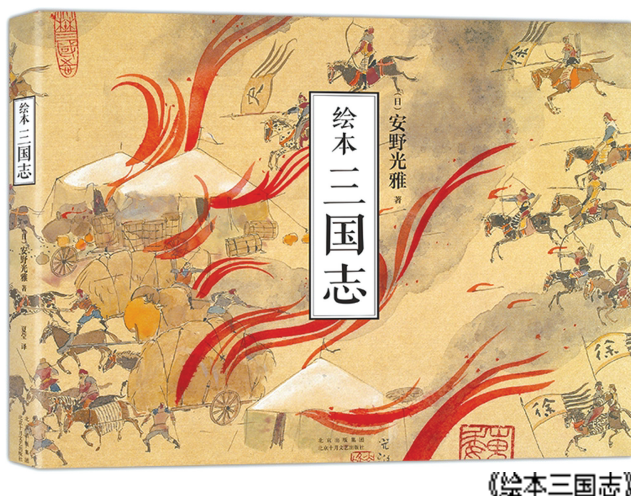 绘本
三国志
(日)安野光雅 著
绘本 三国志
(日)安野光雅 著
夏莹 译
徐
徐
徐
北京出版集团
北京十月文艺出版社
《绘本三国志》